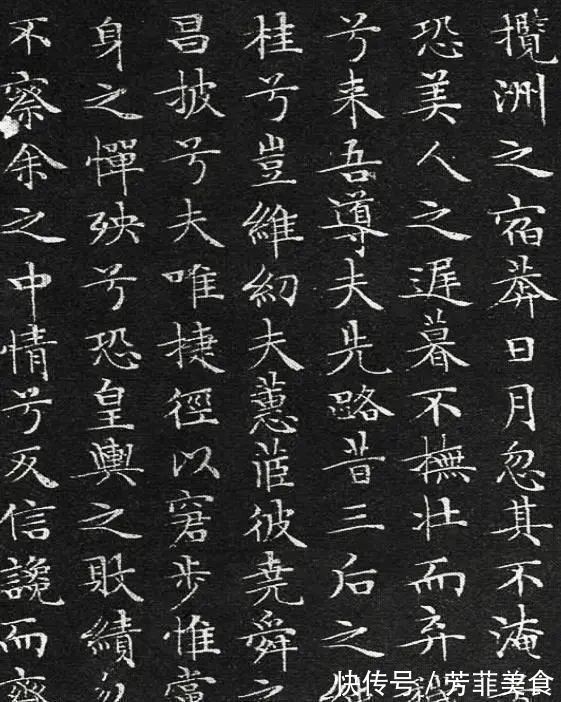 攬洲之宿莽日月忽其不淹
恐美人之遲暮不撫壯而弃
兮来吾導夫先路昔三后之
桂兮豈維紉夫蕙茝彼堯舜之
昌披兮夫唯捷徑以窘步惟當
身之憚殃兮恐皇輿之敗績忽
不察余之中情兮反信讒而齊
快传号/芳菲美食